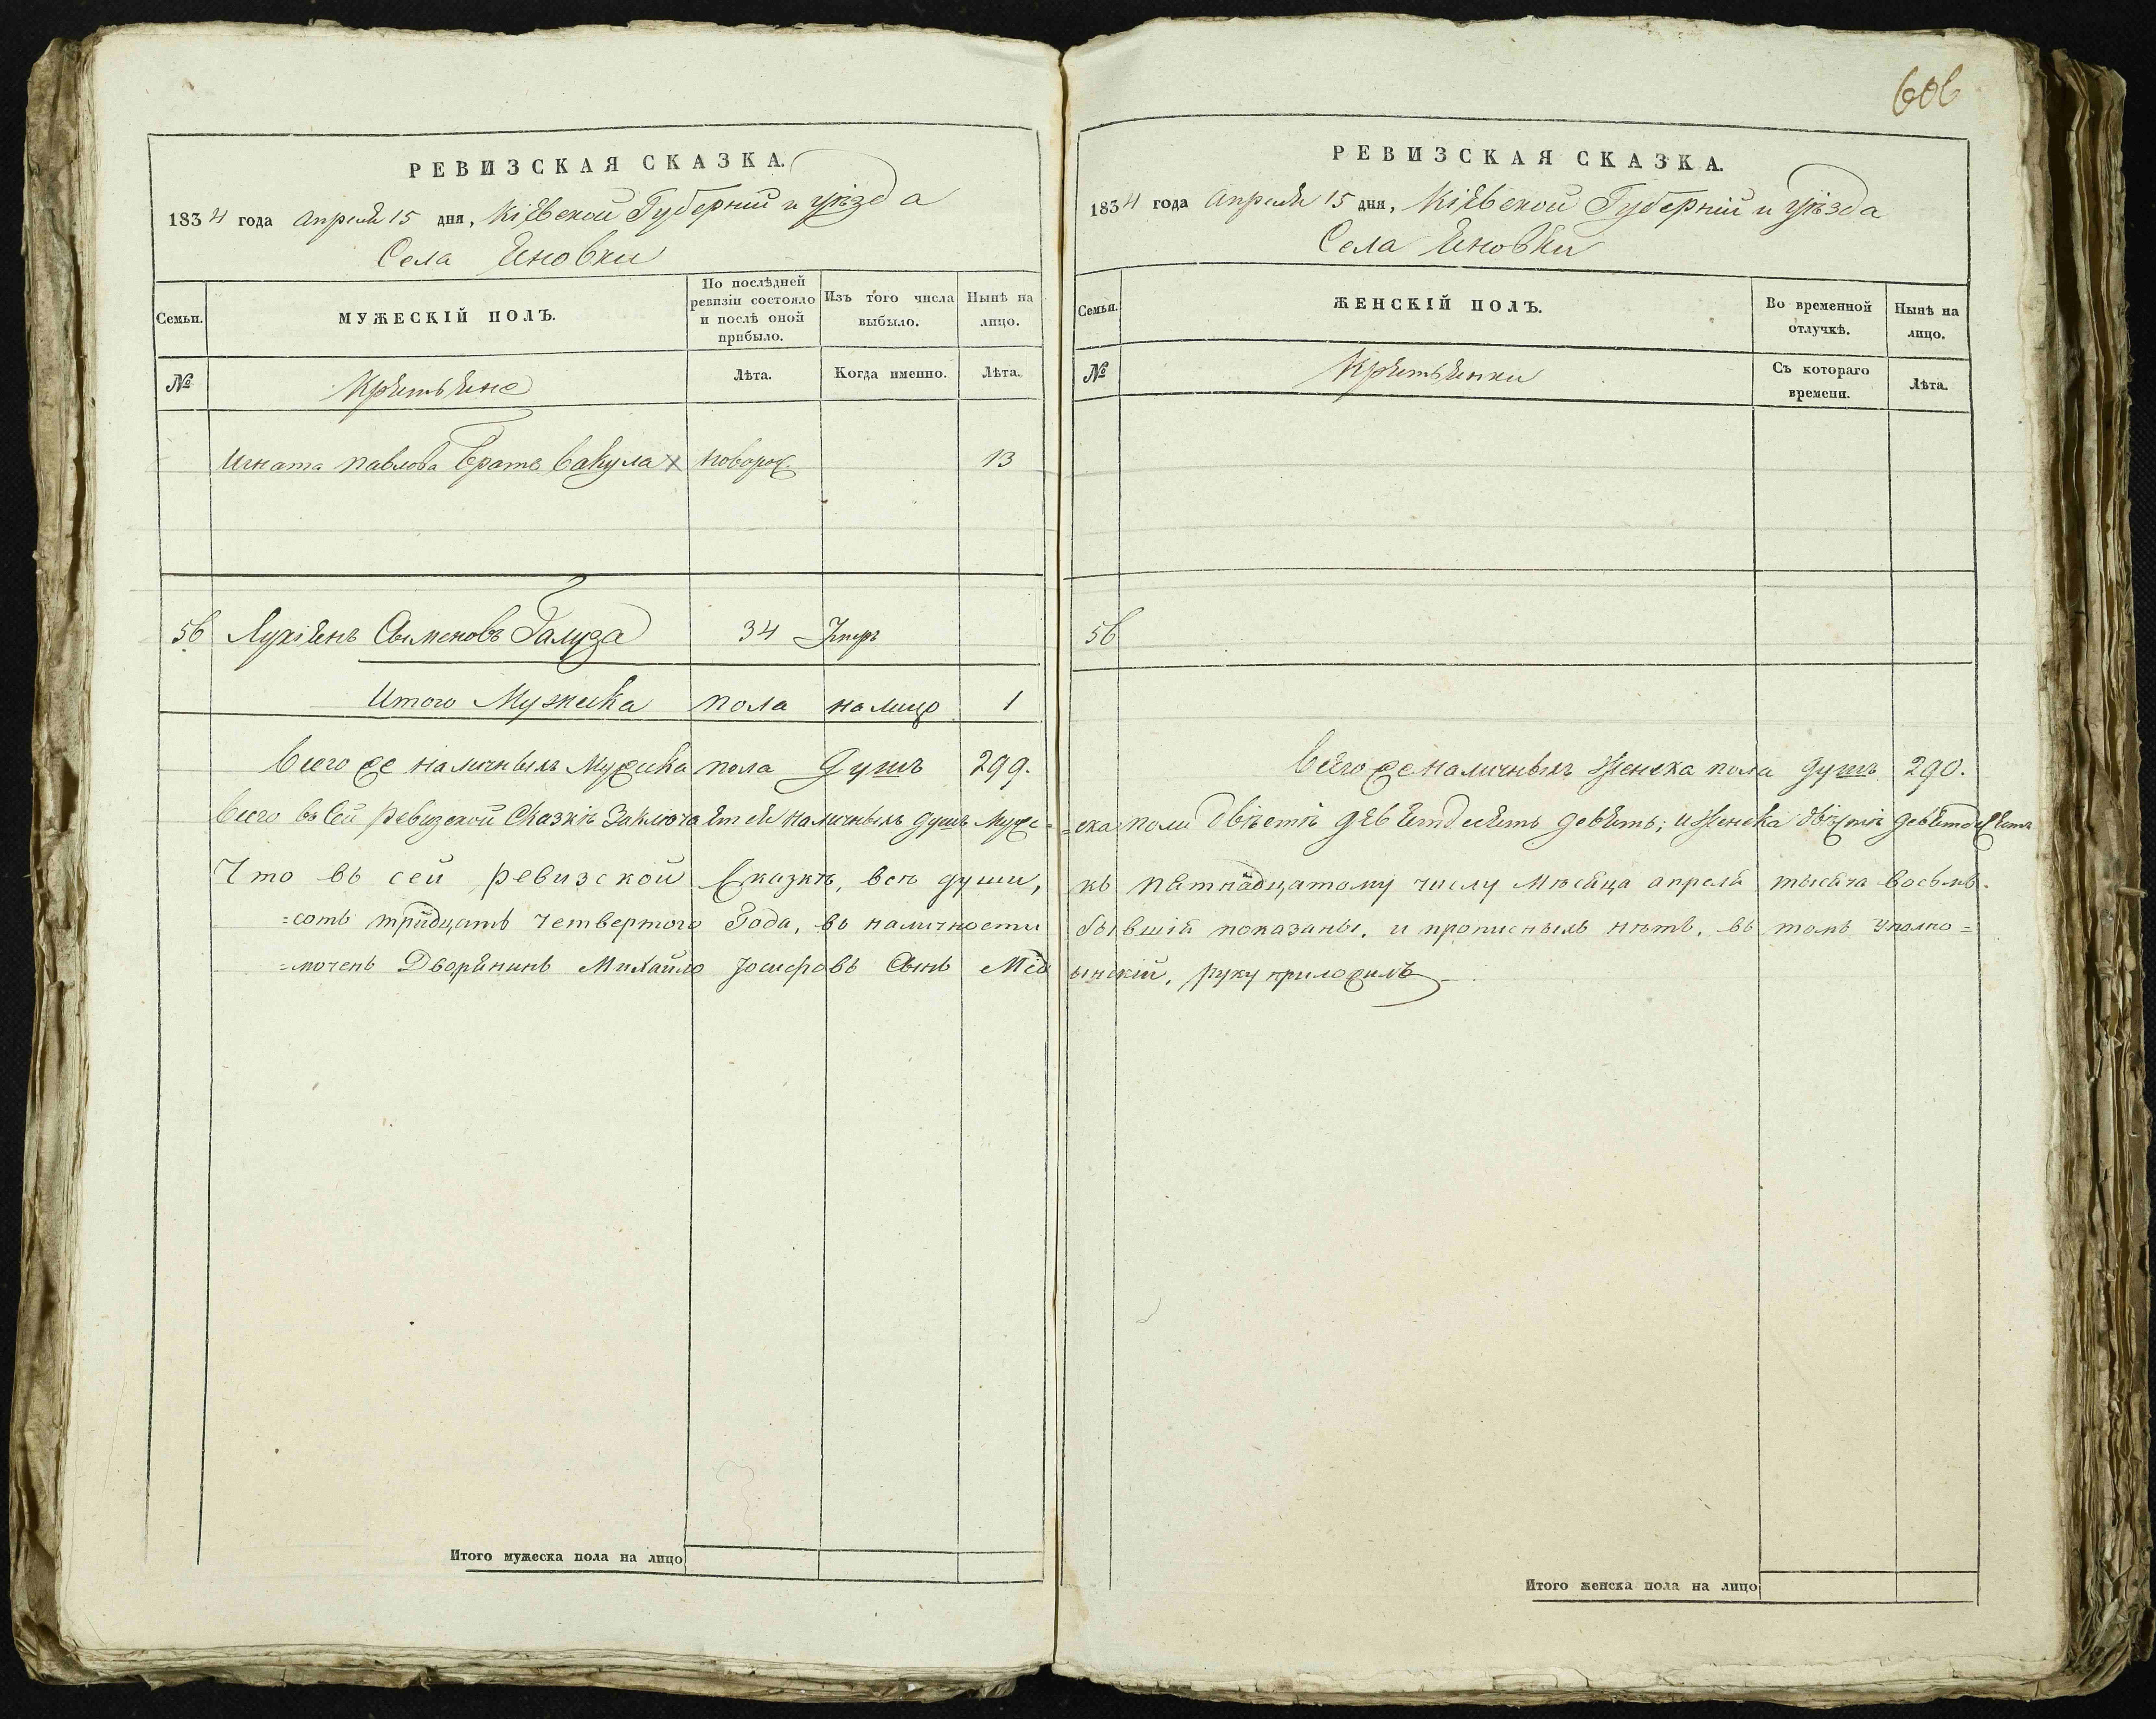 606
РЕВИЗСКАЯ СКАЗКА.
1834 года апреля 15 дня, Кіевской Губерніи и уѣзда
Села Яновки
Семьи.
МУЖЕСКІЙ ПОЛЪ.
По послѣдней ревизіи состояло и послѣ оной прибыло.
Изъ того числа выбыло.
Нынѣ на лицо.
№
Крѣстьяне
Лѣта.
Когда именно.
Лѣта.
Игната павлова братъ вакула х новорож. 13
56 Лукіянъ Семеновъ Галуза 34 Умеръ
Итого Мужеска пола налицо 1
Всего же наличныхъ Мужеска пола душъ 299.
РЕВИЗСКАЯ СКАЗКА.
1834 года апреля 15 дня, Кіевской Губерніи и уѣзда
Села Яновки
Семьи.
ЖЕНСКІЙ ПОЛЪ.
Во временной отлучкѣ.
Нынѣ на лицо.
№
Крѣстьянки
Съ котораго времени.
Лѣта.
56
Всего же наличныхъ Женска пола душъ 290.
Всего въ Сей Ревизской Сказкѣ Заключается наличныхъ душъ Муже= =ска пола двѣстѣ девятдесятъ девять; и Женска двѣстѣ девятдесятъ
Что въ сей ревизской Сказкѣ, всѣ души, къ пятнадцатому числу Мѣсяца апреля тысяча восемь-
=сотъ тридцать четвертого Года, въ наличности бывшія показаны, и прописныхъ нѣтъ, въ томъ уполно=
=моченъ Дворянинъ Михайло Іосифовъ Сынъ руку приложилъ
Итого мужеска пола на лицо
Итого женска пола на лицо